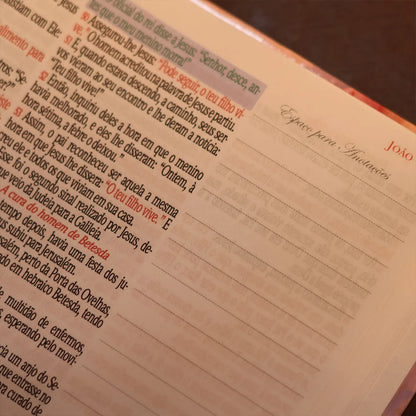 João
Espaço para Anotações
oficial do rei disse a Jesus: "Senhor, desce, an-
es que o meu menino morra!"
50 Assegurou-lhe Jesus: "Pode seguir, o teu filho vi-
ve." O homem acreditou na palavra de Jesus e partiu.
51 E, quando estava descendo, a caminho, seus ser-
vos vieram ao seu encontro e lhe deram a notícia:
"Teu filho vive!"
52 Então, inquiriu deles a hora em que o menino
havia melhorado, e eles lhe disseram: "Ontem, à
hora sétima, a febre o deixou."
Assim, o pai reconheceu ser aquela a mesma
hora em que Jesus lhe dissera: "O teu filho vive." E
creu ele e todos os que viviam em sua casa.
Esse foi o segundo sinal realizado por Jesus, de-
que veio da Judeia para a Galileia.
A cura do homem de Betesda
tempo depois, havia uma festa dos ju-
sus subiu para Jerusalém.
salém, perto da Porta das Ovelhas,
ado em hebraico Betesda, tendo
multidão de enfermos,
, esperando pelo movi-
cia um anjo do Se-
que entrasse no
ra curado de
stiam com Ele.
a Jesus
alimento para
tros: "Se